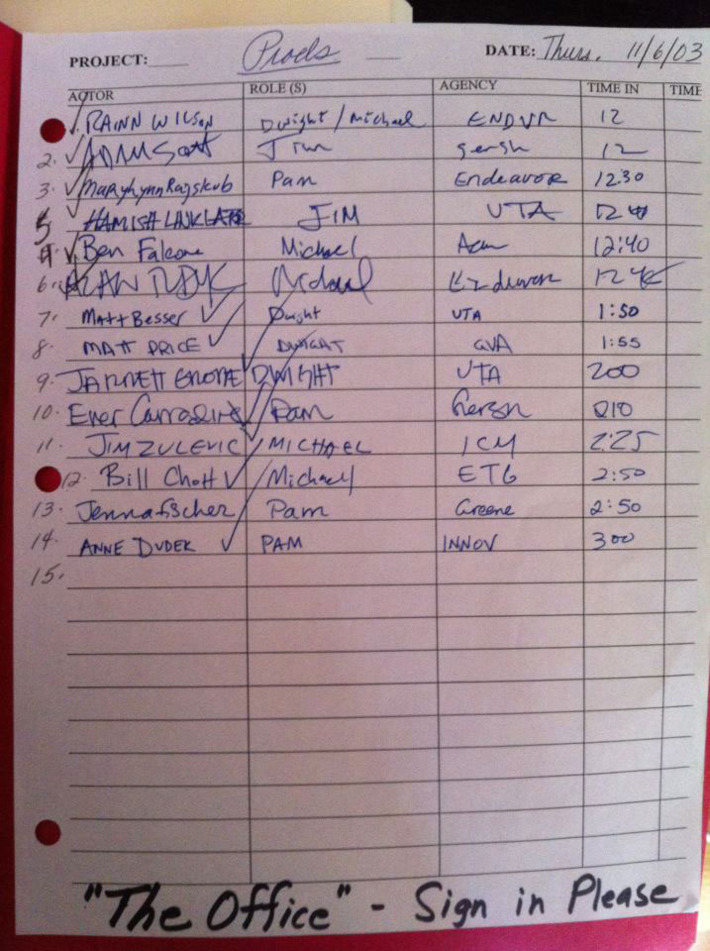 PROJECT: Prods DATE: Thurs. 11/6/03
ACTOR ROLE (S) AGENCY TIME IN TIME
1. RAINN WILSON Dwight / Michael ENDVR 12
2. ADAM SCOTT Jim gersh 12
3. Mary Lynn Rajskub Pam Endeavor 12:30
5 HAMISH LINKLATER JIM UTA
4. Ben Falcone Michael 12:40
6. ALAN Michael Endeavor
7. Matt Besser Dwight UTA 1:50
8. MATT PRICE DWIGHT GVA 1:55
9. DWIGHT UTA 200
10. Ever Carradine Pam Gersh 210
11. JIM ZULEVIC MICHAEL ICM 2:25
12. Bill Chott Michael ETG 2:50
13. Jenna fischer Pam Greene 2:50
14. ANNE DUDEK PAM INNOV 300
15.
"The Office" - Sign in Please